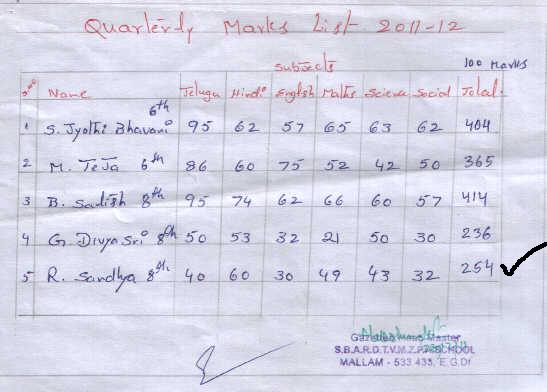 Quarterly Marks List 2011-12
Subjects 100 Marks
S.no Name Telugu Hindi English Maths Science Social Total
1 S. Jyothi Bhavani 6th 95 62 57 65 63 62 404
2 M. Teja 6th 86 60 75 52 42 50 365
3 B. Satish 8th 95 74 62 66 60 57 414
4 G. Divya Sri 8th 50 53 32 21 50 30 236
5 R. Sandhya 8th 40 60 30 49 43 32 254
Master
S.B.A.R.D.T.V.M.Z.P. SCHOOL
MALLAM - 533 433, E.G.Dt